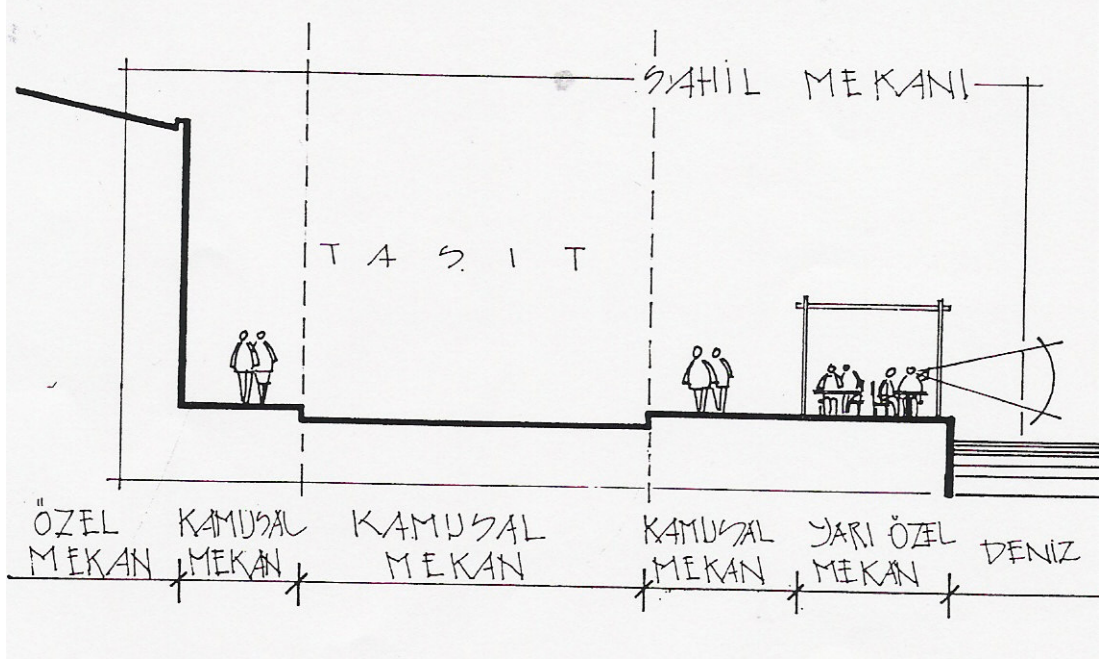 SAHİL MEKANI
TAŞIT
ÖZEL
MEKAN
KAMUSAL
MEKAN
KAMUSAL
MEKAN
KAMUSAL
MEKAN
YARI ÖZEL
MEKAN
DENİZ